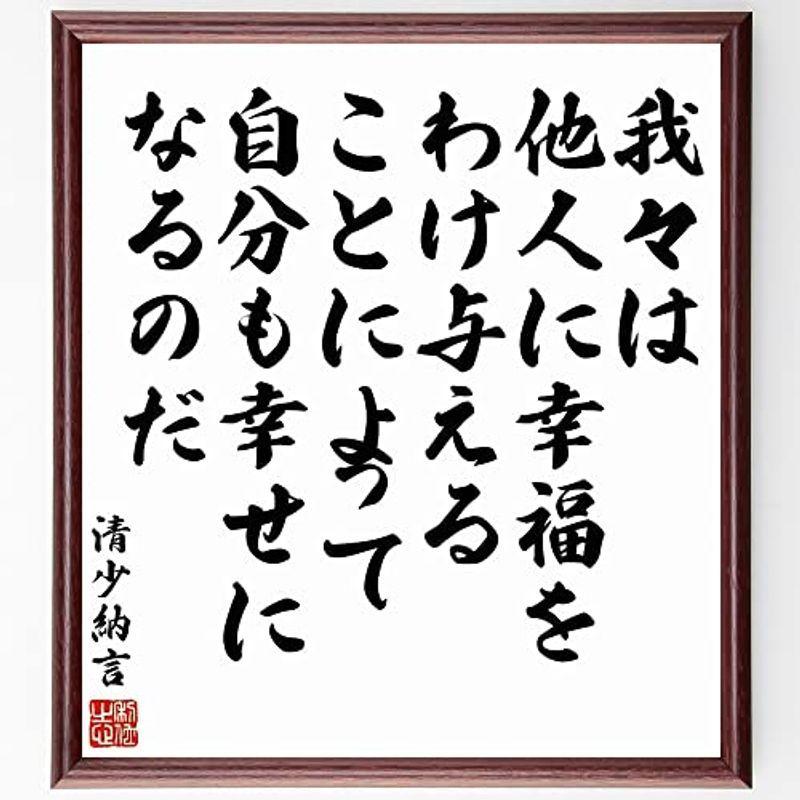 我々は
他人に幸福を
わけ与える
ことによって
自分も幸せに
なるのだ
清少納言